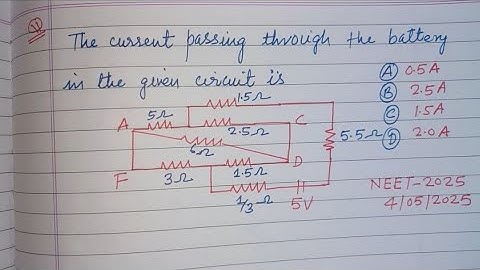 The current passing through the battery
in the given circuit is
(A) 0.5A
(B) 2.5A
(C) 1.5A
(D) 2.0A
1.5Ω
5Ω
A
C
2.5Ω
5.5Ω
6Ω
D
F
3Ω
1.5Ω
1/3 Ω
5V
NEET-2025
4/05/2025